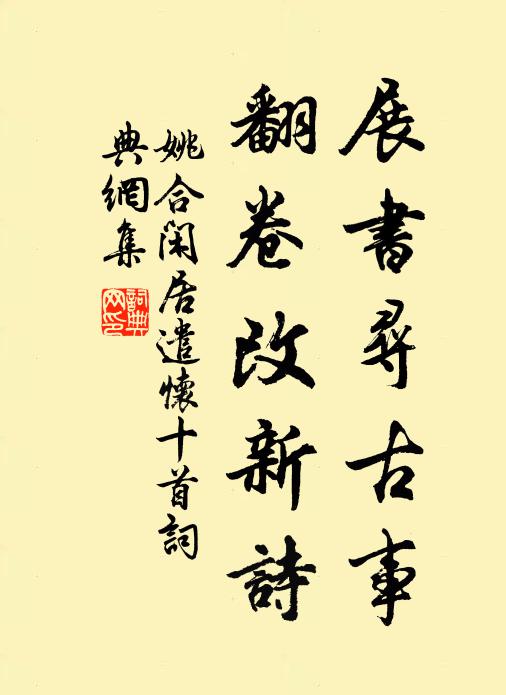 展書尋古事
翻卷改新詩
姚合閑居遣懷十首詞
典網集
詞典
网印